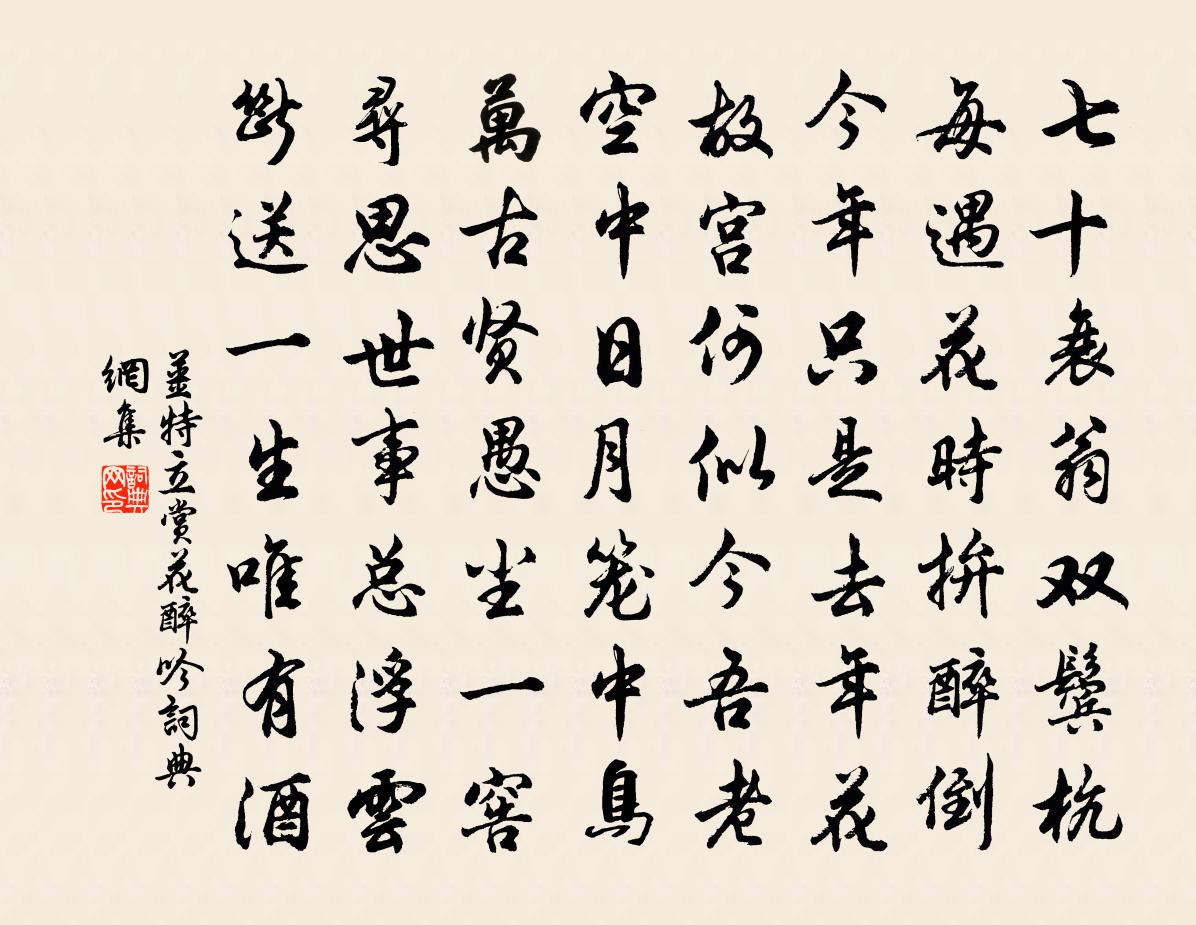 七十衰翁双鬓杭
每遇花時拚醉倒
今年只是去年花
故宫何似今吾老
空中日月笼中鳥
萬古贤愚尘一窖
尋思世事总浮雲
斷送一生唯有酒
薑特立赏花醉吟詞典
網集
詞典网印